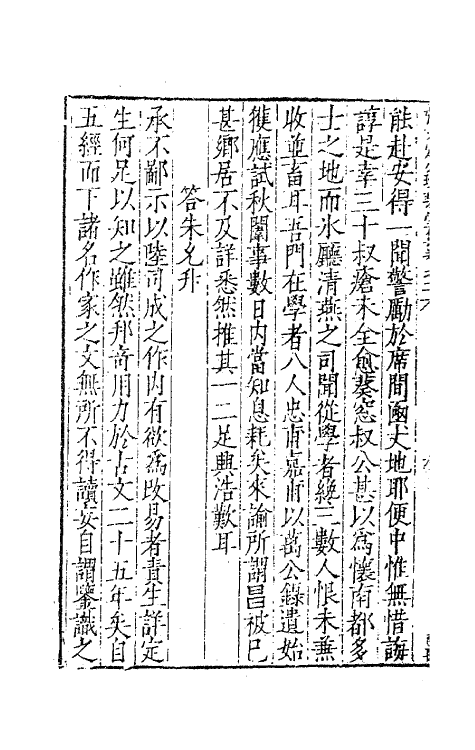 能赴安得一聞警勵於席間凾丈地耶便中惟無惜誨
諄是幸三十叔瘡未全愈葵窓叔公甚以為懷南都多
士之地而氷廳清燕之司聞從學者纔三數人恨未兼
收並畜耳吾門在學者八人忠甫嘉甫以萬公錄遺始
獲應試秋闈事數日内當知息耗矣來諭所謂昌被已
甚鄉居不及詳悉然推其一二足興浩歎耳
答朱允升
承不鄙示以陸司成之作内有欲為改易者責生詳定
生何足以知之雖然邦奇用力於古文二十五年矣自
五經而下諸名作家之文無所不得讀妄自謂鑒識之